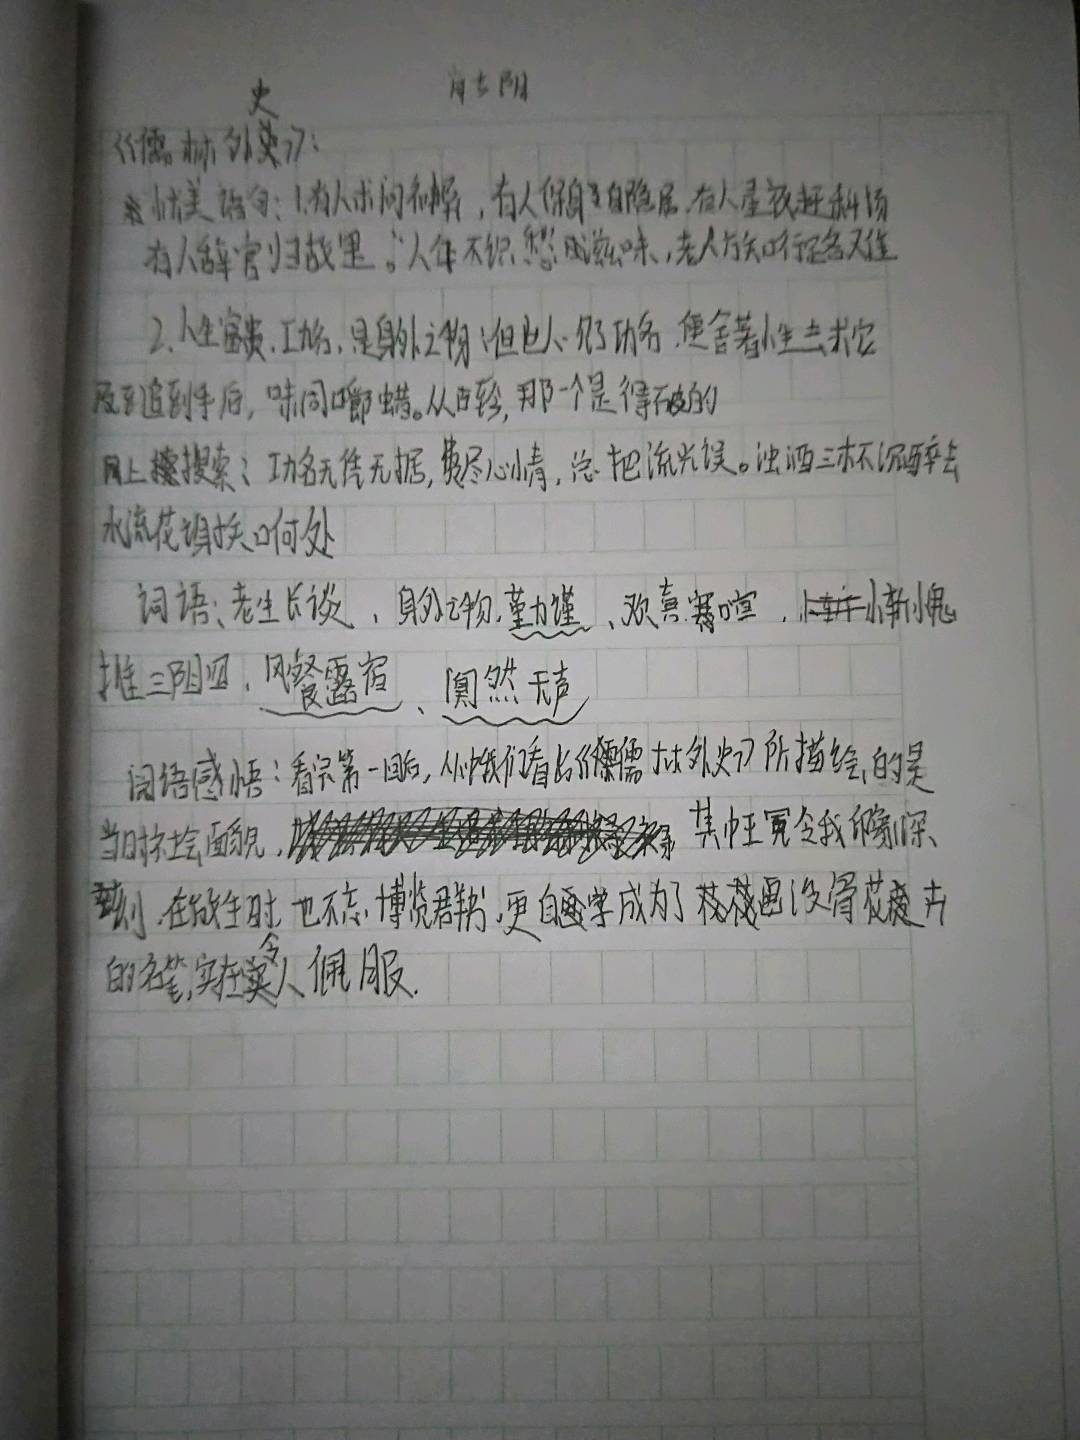 史
《儒林外史》:
优美语句:1.有人求问和解,有人保身自隐居.有人星夜赶科场
有人辞官归故里。少年不识愁滋味,老人方知行
2.人生富贵.功名,是身外之物;但世人一见了功名,便舍着性生去求它
及到追到手后,味同嚼蜡。从古轻,那一个是得破的
网上搜索:功名无凭无据,费尽心情,总把流光误。浊酒三杯沉醉去
水流花谢知何处
词语:老生长谈、身外之物.勤谨、欢喜寒喧.小斩小鬼
推三阻四、风餐露宿、阒然无声
词语感悟:看完第一回后,从中我们看出《儒林外史》所描绘的是
当时社会面貌,其中王冕令我印象深
刻.在放牛时,也不忘博览群书,更自画学成为了画没骨花卉
的名笔,实在令人佩服.